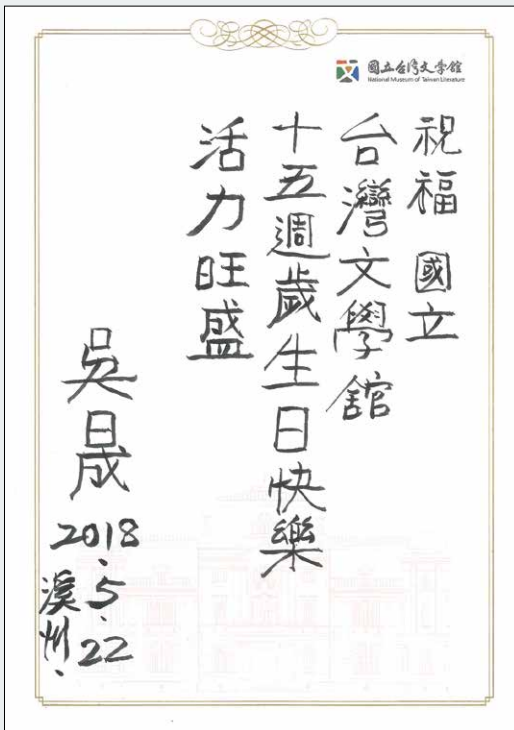 國立台灣文學館
National Museum of Taiwan Literature
祝福 國立
台灣文學館
十五週歲生日快樂
活力旺盛
吳晟
2018.5.22
溪州.